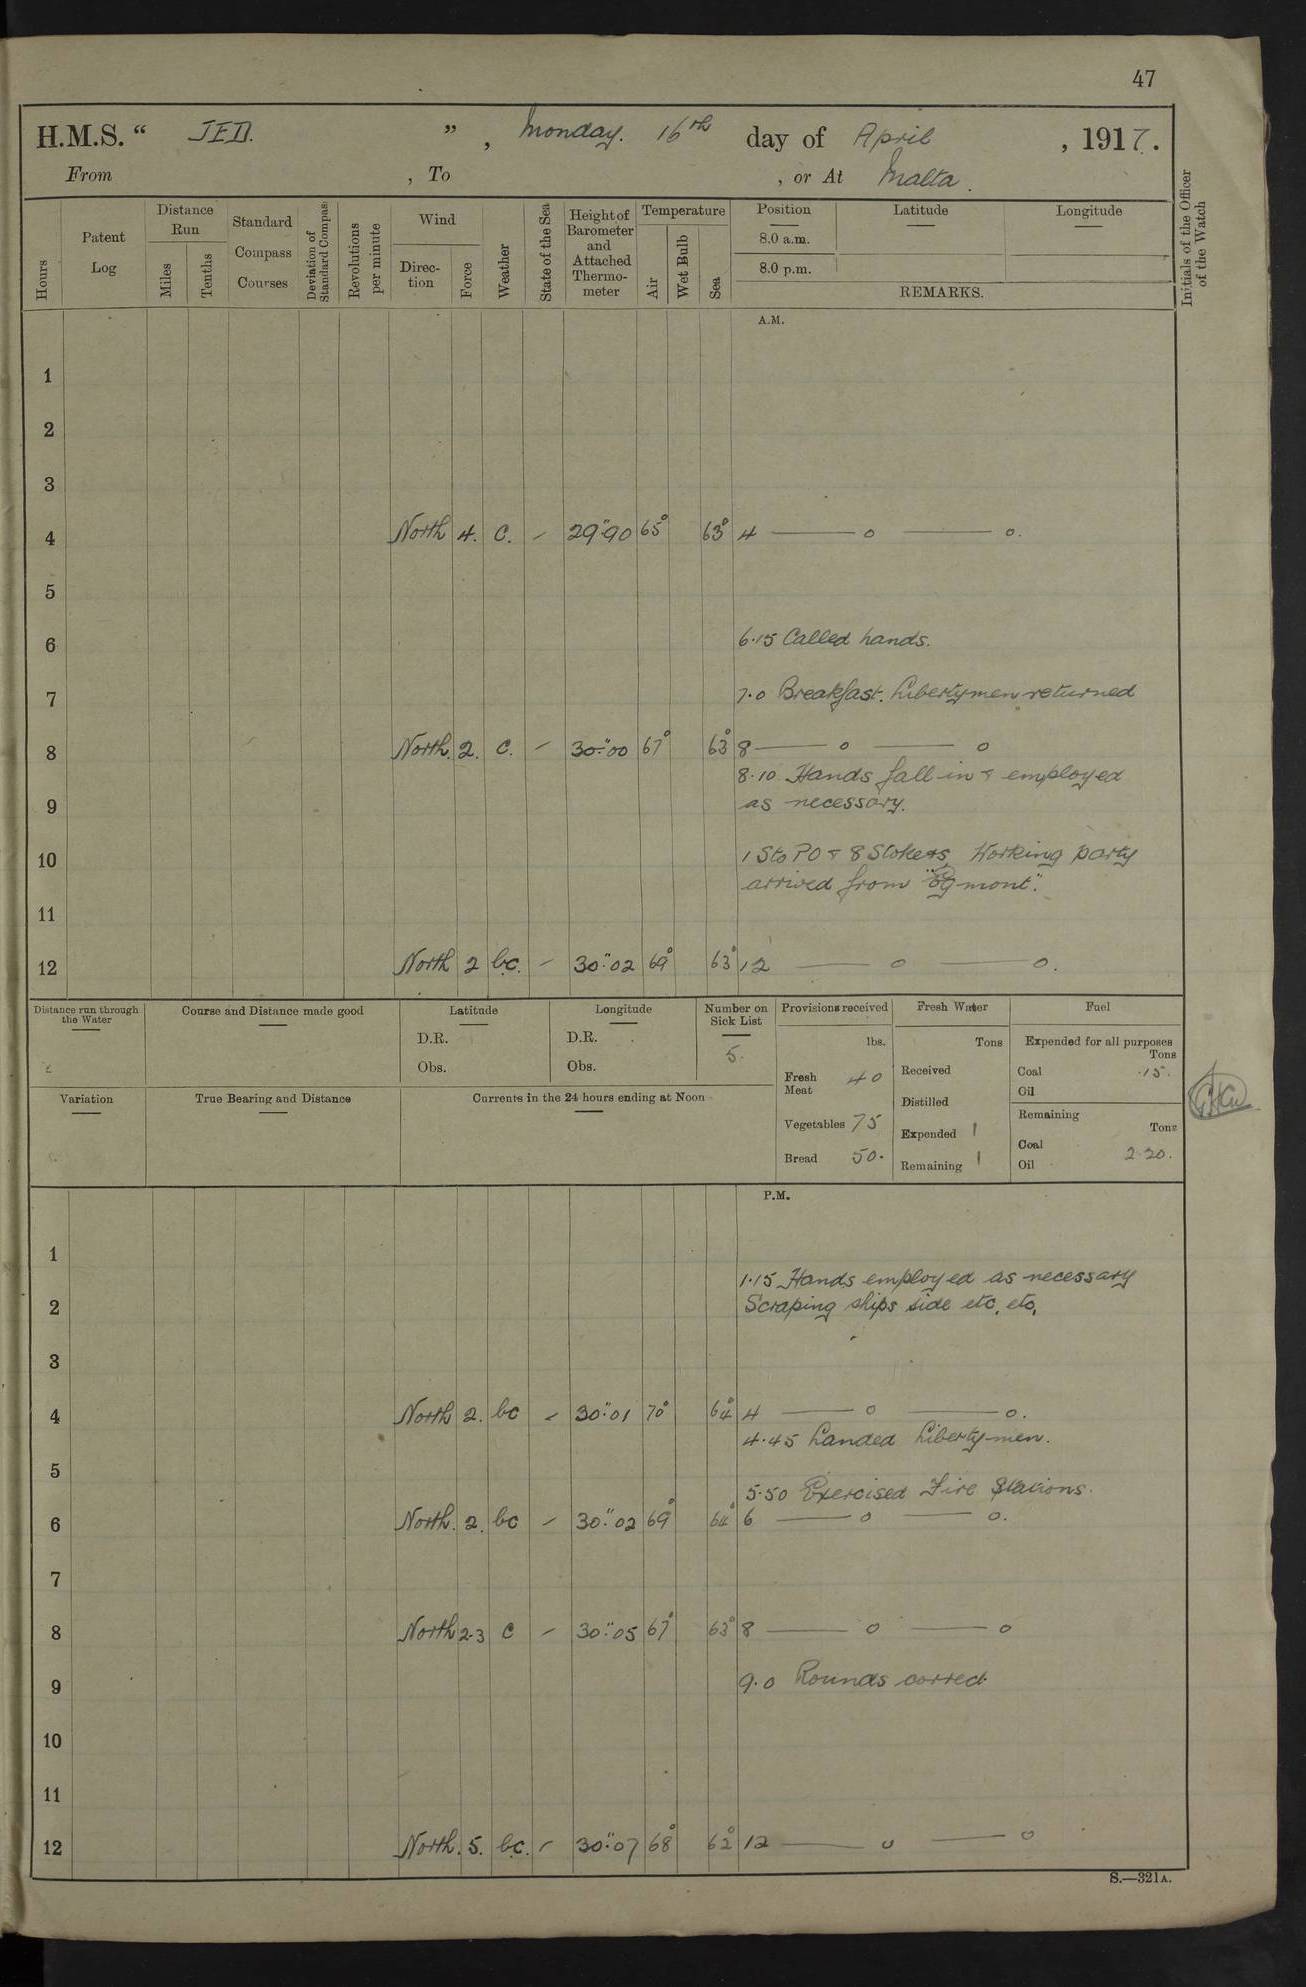 47
H.M.S. “ JED. ” , Monday. 16th day of April , 1917.
From , To , or At Malta.
Hours
Patent Log
Distance Run
Miles
Tenths
Standard Compass Courses
Deviation of Standard Compass
Revolutions per minute
Wind
Direction
Force
Weather
State of the Sea
Height of Barometer and Attached Thermometer
Temperature
Air
Wet Bulb
Sea
Position
8.0 a.m.
8.0 p.m.
Latitude
Longitude
REMARKS.
Initials of the Officer of the Watch
A.M.
1
2
3
4 North 4. C. - 29"·90 65° 63° 4 —— o —— o.
5
6 6·15 Called hands.
7 7·0 Breakfast. Libertymen returned
8 North. 2. C. - 30"·00 67° 63° 8 —— o —— o
8·10 Hands fall in & employed
9 as necessary.
10 1 Sto PO & 8 Stokers, Working party
arrived from "Egmont".
11
12 North 2 bc. - 30"·02 69° 63° 12 —— o —— o.
Distance run through the Water
Course and Distance made good
Latitude
D.R.
Obs.
Longitude
D.R.
Obs.
Number on Sick List
5.
Provisions received
lbs.
Fresh Meat 40
Vegetables 75
Bread 50.
Fresh Water
Tons
Received
Distilled
Expended 1
Remaining 1
Fuel
Expended for all purposes
Tons
Coal ·15.
Oil
Remaining
Tons
Coal
Oil 2·20.
Variation
True Bearing and Distance
Currents in the 24 hours ending at Noon
P.M.
1
1·15 Hands employed as necessary
2 Scraping ships side etc. etc.
3
4 North 2. bc - 30"·01 70° 64° 4 —— o —— o.
4·45 Landed Libertymen.
5
5·50 Exercised Fire Stations.
6 North. 2. bc - 30"·02 69° 64° 6 —— o —— o.
7
8 North 2-3 C - 30"·05 67° 63° 8 —— o —— o
9 9·0 Rounds correct.
10
11
12 North. 5. bc. - 30"·07 68° 62° 12 —— o —— o
S.—321A.